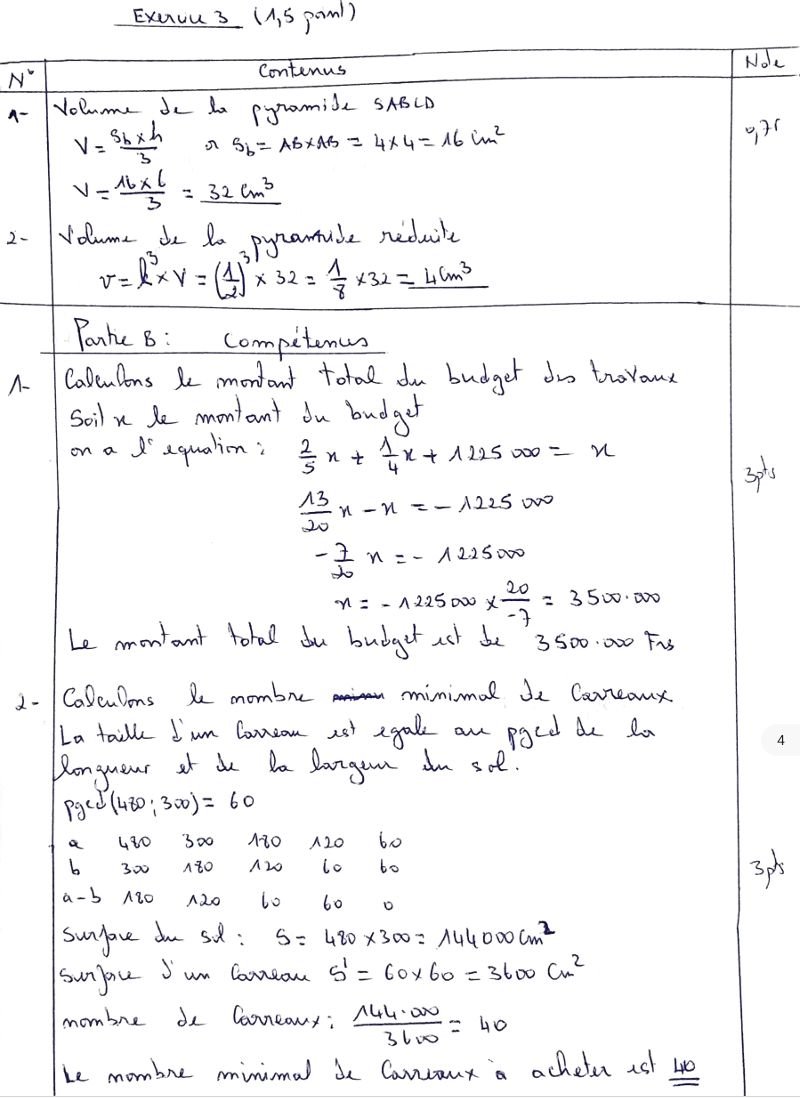 Exercice 3 (1,5 point)
N° Contenus Note
1- Volume de la pyramide SABCD
V = Sb×h/3 or Sb = AB×AB = 4×4 = 16 cm² 0,75
V = 16×6/3 = 32 cm³
2- Volume de la pyramide réduite
v = k³×V = (1/2)³ × 32 = 1/8 ×32 = 4cm³
Partie B : Compétences
1- Calculons le montant total du budget des travaux
Soit x le montant du budget
on a l'equation : 2/5 x + 1/4 x + 1225 000 = x
3pts
13/20 x - x = - 1225 000
-7/20 x = - 1225000
x = - 1225000 × 20/-7 = 3500.000
Le montant total du budget est de 3500.000 Frs
2- Calculons le nombre minimal de Carreaux
La taille d'un Carreau est egale au pgcd de la
longueur et de la largeur du sol.
4
pgcd(480 ; 300) = 60
a 480 300 180 120 60
b 300 180 120 60 60
3pts
a-b 180 120 60 60 0
Surface du sol : S = 480 ×300 = 144000 Cm²
Surface d'un Carreau S' = 60×60 = 3600 Cm²
nombre de Carreaux : 144.000/3600 = 40
Le nombre minimal de Carreaux à acheter est 40